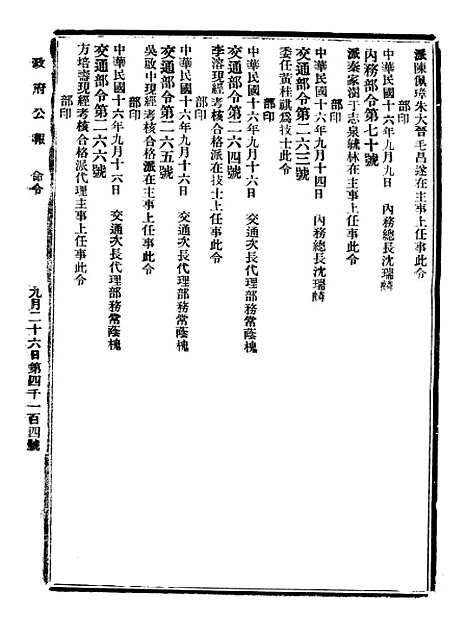 派陳佩璋朱大晉毛昌遂在主事上任事此令
部印
中華民國十六年九月九日　內務總長沈瑞麟
內務部令第七十號
派秦家澍于志泉毓林在主事上任事此令
部印
中華民國十六年九月十四日　內務總長沈瑞麟
交通部令第二六三號
委任黃桂祺爲技士此令
部印
中華民國十六年九月十六日　交通次長代理部務常蔭槐
交通部令第二六四號
李溶現經考核合格派在技士上任事此令
部印
中華民國十六年九月十六日　交通次長代理部務常蔭槐
交通部令第二六五號
吳啟中現經考核合格派在主事上任事此令
部印
中華民國十六年九月十六日　交通次長代理部務常蔭槐
交通部令第二六六號
方培壽現經考核合格派代理主事上任事此令
部印
政府公報　命令　九月二十六日第四千一百四號